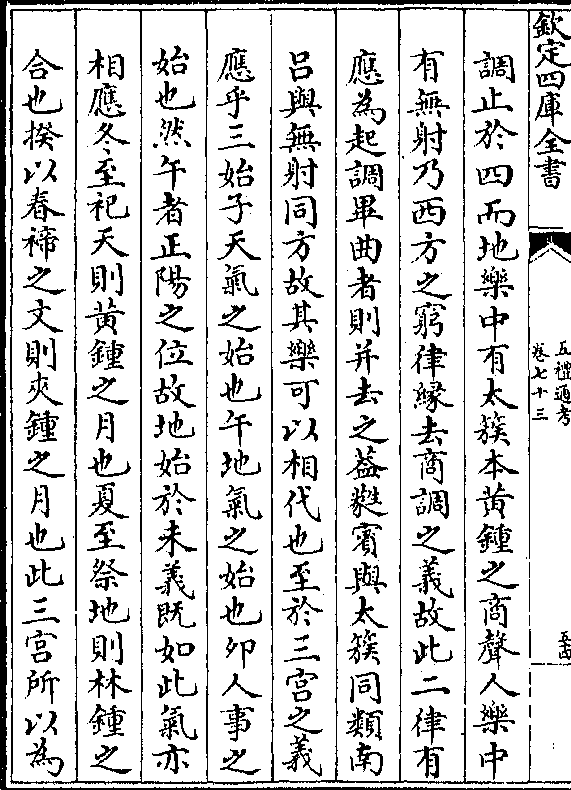 欽定四庫全書
五禮通考
卷七十三
調止於四而地樂中有太簇本黄鍾之商聲人樂中
有無射乃西方之窮律縁去商調之義故此二律有
應為起調畢曲者則并去之葢蕤賓與太簇同類南
吕與無射同方故其樂可以相代也至於三宫之義
應乎三始子天氣之始也午地氣之始也卯人事之
始也然午者正陽之位故地始於未義既如此氣亦
相應冬至祀天則黄鍾之月也夏至祭地則林鍾之
合也揆以春禘之文則夾鍾之月也此三宫所以為